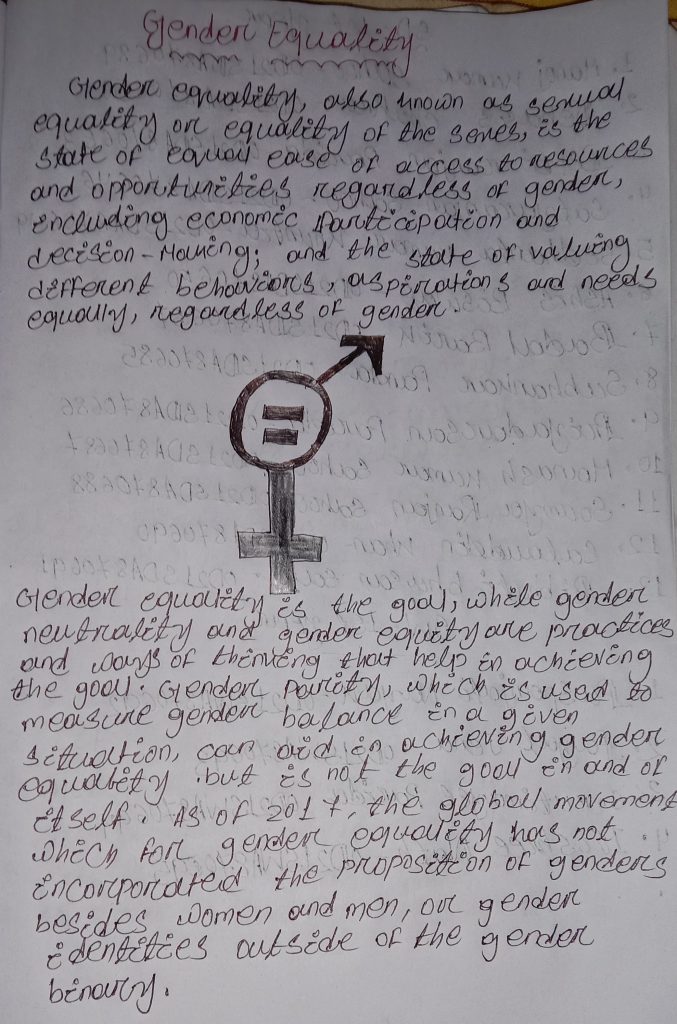 Gender Equality
Gender equality, also known as sexual
equality or equality of the sexes, is the
state of equal ease of access to resources
and opportunities regardless of gender,
including economic participation and
decision-Making; and the state of valuing
different behaviors, aspirations and needs
equally, regardless of gender.
=
Gender equality is the goal, while gender
neutrality and gender equity are practices
and ways of thinking that help in achieving
the goal. Gender parity, which is used to
measure gender balance in a given
situation, can aid in achieving gender
equality but is not the goal in and of
itself. As of 2017, the global movement
which for gender equality has not
incorporated the proposition of genders
besides women and men, or gender
identities outside of the gender
binary.